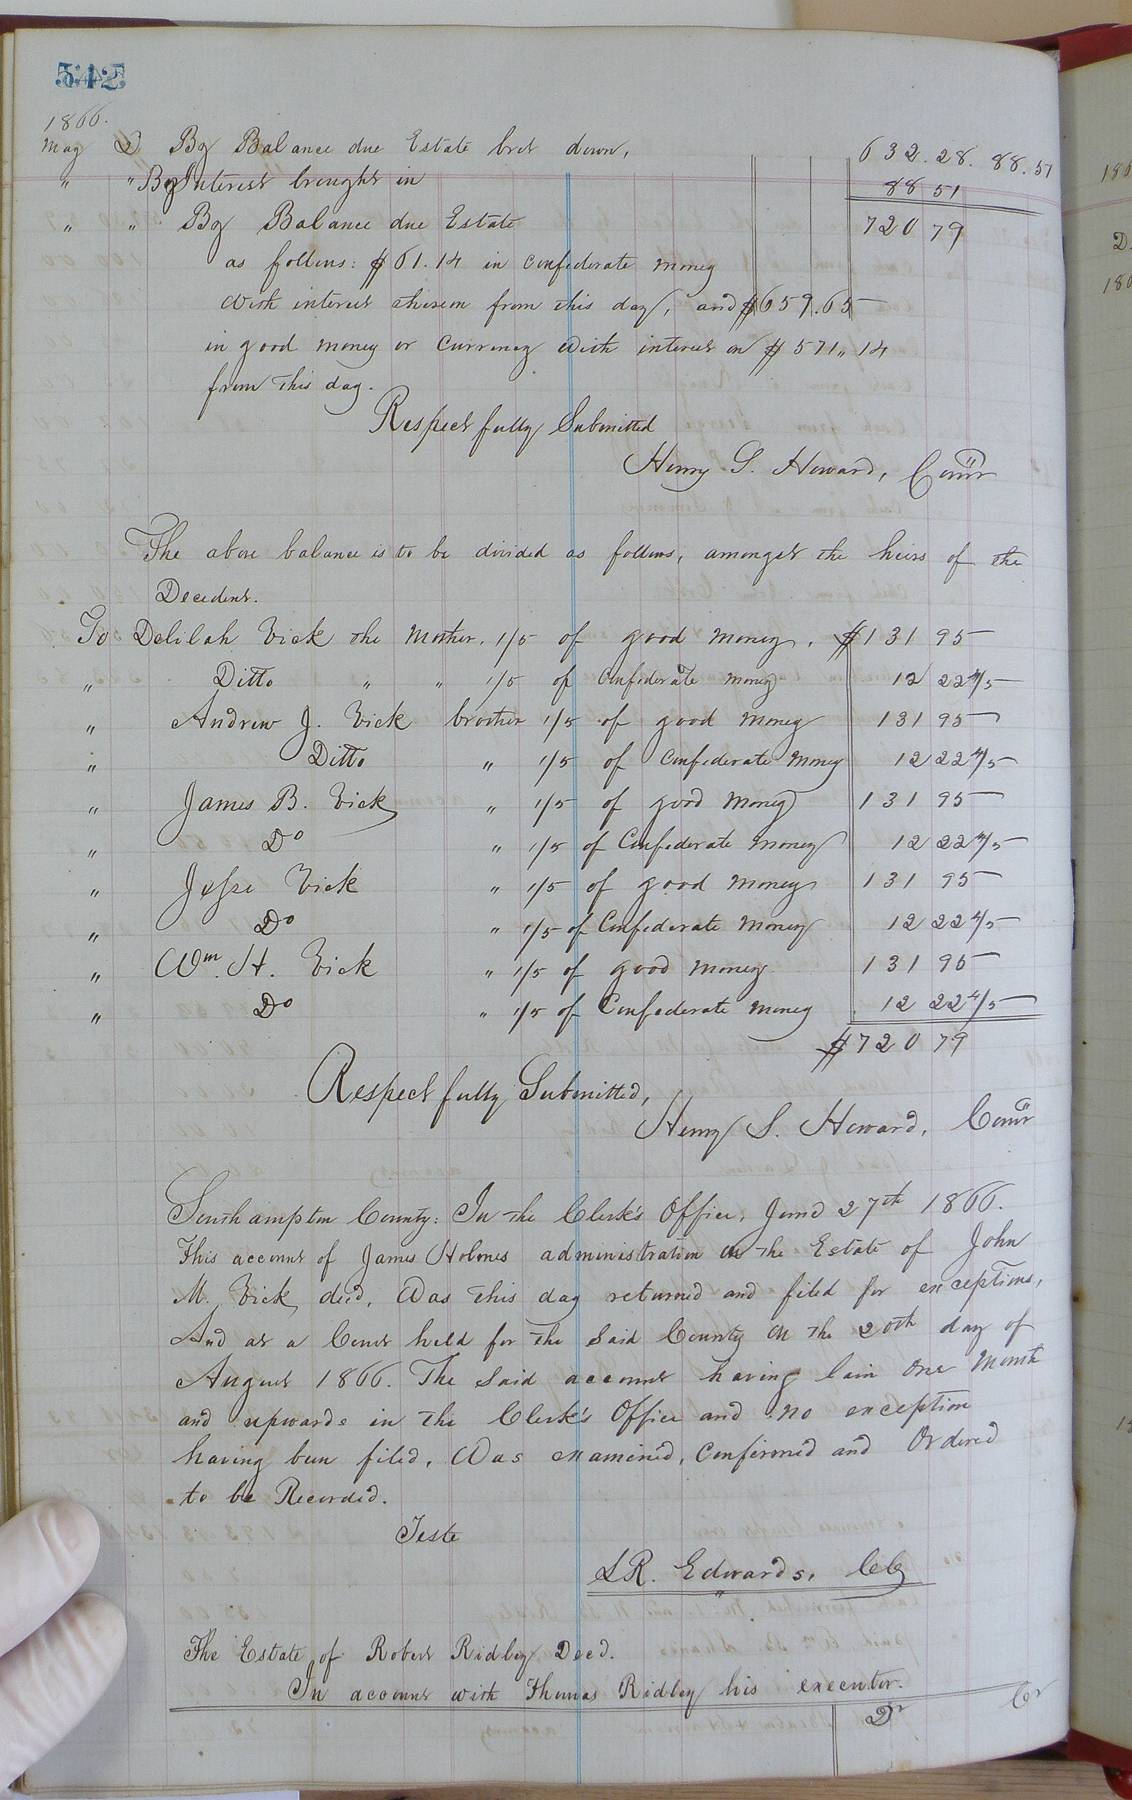 542
1866.
May 2 By Balance due Estate brot down, 632.28. 88.51
" " By Interest brought in 88 51
" " By Balance due Estate 720 79
as follows: $61.14 in Confederate money
With interest thereon from this day, and $659.65
in good money or currency with interest on $571.14
from this day.
Respectfully Submitted
Henry S. Howard, Comr
The above balance is to be divided as follows, amongst the heirs of the
Decedent.
To Delilah Vick the Mother, 1/5 of good money. $131 95
" Ditto " " 1/5 of Confederate money 12 22 4/5
" Andrew J. Vick brother 1/5 of good money 131 95
" Ditto " 1/5 of Confederate money 12 22 4/5
" James B. Vick " 1/5 of good money 131 95
" Do " 1/5 of Confederate money 12 22 4/5
" Jesse Vick " 1/5 of good money 131 95
" Do " 1/5 of Confederate money 12 22 4/5
" Wm. H. Vick " 1/5 of good money 131 95
" Do " 1/5 of Confederate money 12 22 4/5
$720 79
Respectfully Submitted,
Henry S. Howard, Comr
Southampton County: In the Clerk's Office, June 27th 1866.
This account of James Holmes administration on the Estate of John
M. Vick decd, Was this day returned and filed for exceptions,
And at a Court held for the said County on the 20th day of
August 1866. The said account having lain One Month
and upwards in the Clerk's Office and no exception
having been filed, Was examined, Confirmed and Ordered
to be Recorded.
Teste
LR. Edwards, CC
The Estate of Robert Ridley Decd.
In account with Thomas Ridley his executor.
Dr Cr